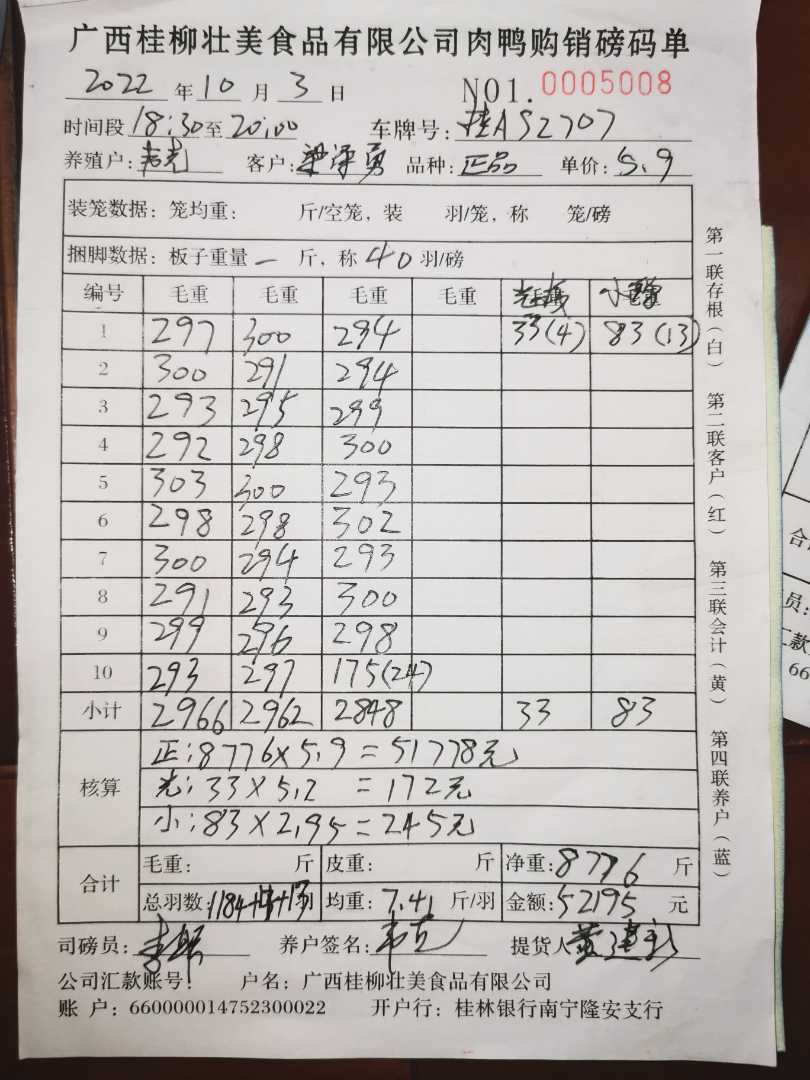 广西桂柳壮美食品有限公司肉鸭购销磅码单
2022 年 10 月 3 日 NO1. 0005008
时间段 18:30 至 20:00 车牌号: 桂AS2707
养殖户: 韦克 客户: 梁泽勇 品种: 正品 单价: 5.9
装笼数据: 笼均重: 斤/空笼, 装 羽/笼, 称 笼/磅
捆脚数据: 板子重量 一 斤, 称 40 羽/磅
编号 毛重 毛重 毛重 毛重 小
1 297 300 294 33(4) 83(13)
2 300 291 294
3 293 295 299
4 292 298 300
5 303 300 293
6 298 298 302
7 300 294 293
8 291 293 300
9 299 296 298
10 293 297 175(24)
小计 2966 2962 2848 33 83
核算
正:8776×5.9=51778元
光:33×5.2 =172元
小:83×2.95=245元
合计
毛重: 斤 皮重: 斤 净重: 8776 斤
总羽数: 1184+ +13 均重: 7.41 斤/羽 金额: 52195 元
司磅员: 养户签名: 韦克 提货人 黄建
公司汇款账号: 户名: 广西桂柳壮美食品有限公司
账 户: 660000014752300022 开户行: 桂林银行南宁隆安支行
第一联存根(白) 第二联客户(红) 第三联会计(黄) 第四联养户(蓝)
合
员:
汇款
66